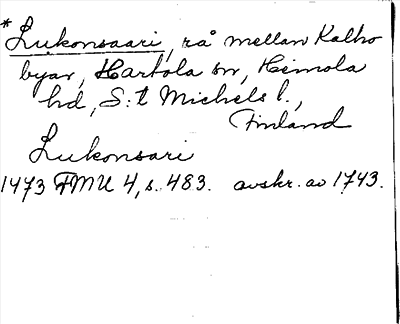 * Lukonsaari, rå mellan Kalho
byar, Hartola sn, Heinola
hd, S:t Michels l.,
Finland
Lukonsari
1473 FMU 4, s. 483. avskr. av 1743.